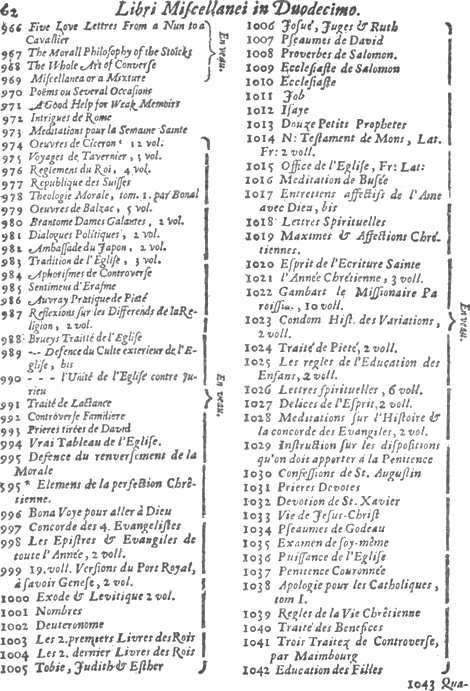 62 Libri Miscellanei in Duodecimo.
966 Five Love Lettres From a Nun to a
Cavallier
967 The Morall Philosophy of the Stoicks
968 The Whole Art of Converse
969 Miscellanea or a Mixture
970 Poëms ou Several Occasions
971 A Good Help for Weak Memoirs
972 Intrigues de Rome
973 Meditations pour la Semaine Sainte
En veau.
974 Oeuvres de Ciceron 12 vol.
975 Voyages de Tavernier, 3 vol.
976 Reglemens du Roi, 4 vol.
977 Republique des Suisses
978 Theologie Morale, tom. 1. par Bonal
979 Oeuvres de Balzac, 5 vol.
980 Brantome Dames Galantes, 2 vol.
981 Dialogues Politiques, 2 vol.
982 Ambassade du Japon, 2 vol.
983 Tradition de l'Eglise, 3 vol.
984 Aphorismes de Controverse
985 Sentimens d'Erasme
986 Auvray Pratique de Pieté
987 Reflexions sur les Differends de la Re-
ligion, 2 vol.
988 Brueys Traitté de l'Eglise
989 -- Defence du Culte exterieur de l'E-
glise, bis
990 - - - l'Unité de l'Eglise contre Ju-
rieu
991 Traité de Lactance
992 Contróverse Familiere
993 Prieres tirées de David
994 Vrai Tableau de l'Eglise.
995 Defence du renversement de la
Morale
995* Elemens de la perfection Chrê-
tienne.
996 Bona Voye pour aller à Dieu
997 Concorde des 4. Evangelistes
998 Les Epistres & Evangiles de
toute l'Année, 2 voll.
999 19. voll. Versions du Port Royal,
à savoir Genese, 2 vol.
1000 Exode & Levitique 2 vol.
1001 Nombres
1002 Deuteronome
1003 Les 2. premiers Livres des Rois
1004 Les 2. dernier Livres des Rois
1005 Tobie, Judith & Esther
En veau.
1006 Josué, Juges & Ruth
1007 Pseaumes de David
1008 Proverbes de Salomon.
1009 Ecclesiaste de Salomon
1010 Ecclesiaste
1011 Job
1012 Isaye
1013 Douze Petits Prophetes
1014 N: Testament de Mons, Lat.
Fr: 2 voll.
1015 Office de l'Eglise, Fr: Lat:
1016 Meditation de Busée
1017 Entretiens affectifs de l'Ame
avec Dieu, bis
1018 Lettres Spirituelles
1019 Maximes & Affections Chré-
tiennes.
1020 Esprit de l'Ecriture Sainte
1021 l'Année Chrétienne, 3 voll.
1022 Gambart le Missionaire Pa
roissial, 10 voll.
1023 Condom Hist. des Variations,
2 voll.
1024 Traité de Pieté, 2 voll.
1025 Les regles de l'Education des
Enfans, 2 voll.
1026 Lettres spirituelles, 6 voll.
1027 Delices de l'Esprit, 2 voll.
1028 Meditations sur l'Histoire &
la concorde des Evangiles, 2 vol.
1029 Instruction sur les dispositions
qu'on doit apporter à la Penitence
1030 Confessions de St. Augustin
1031 Prieres Devotes
1032 Devotion de St. Xavier
1033 Vie de Jesus-Christ
1034 Pseaumes de Godeau
1035 Examen de soy-même
1036 Puissance de l'Eglise
1037 Penitence Couronnée
1038 Apologie pour les Catholiques,
tom 1.
1039 Regles de la Vie Chrêtienne
1040 Traité des Benefices
1041 Trois Traitez de Controverse,
par Maimbourg
1042 Education des Filles
En veau.
1043 Qua-